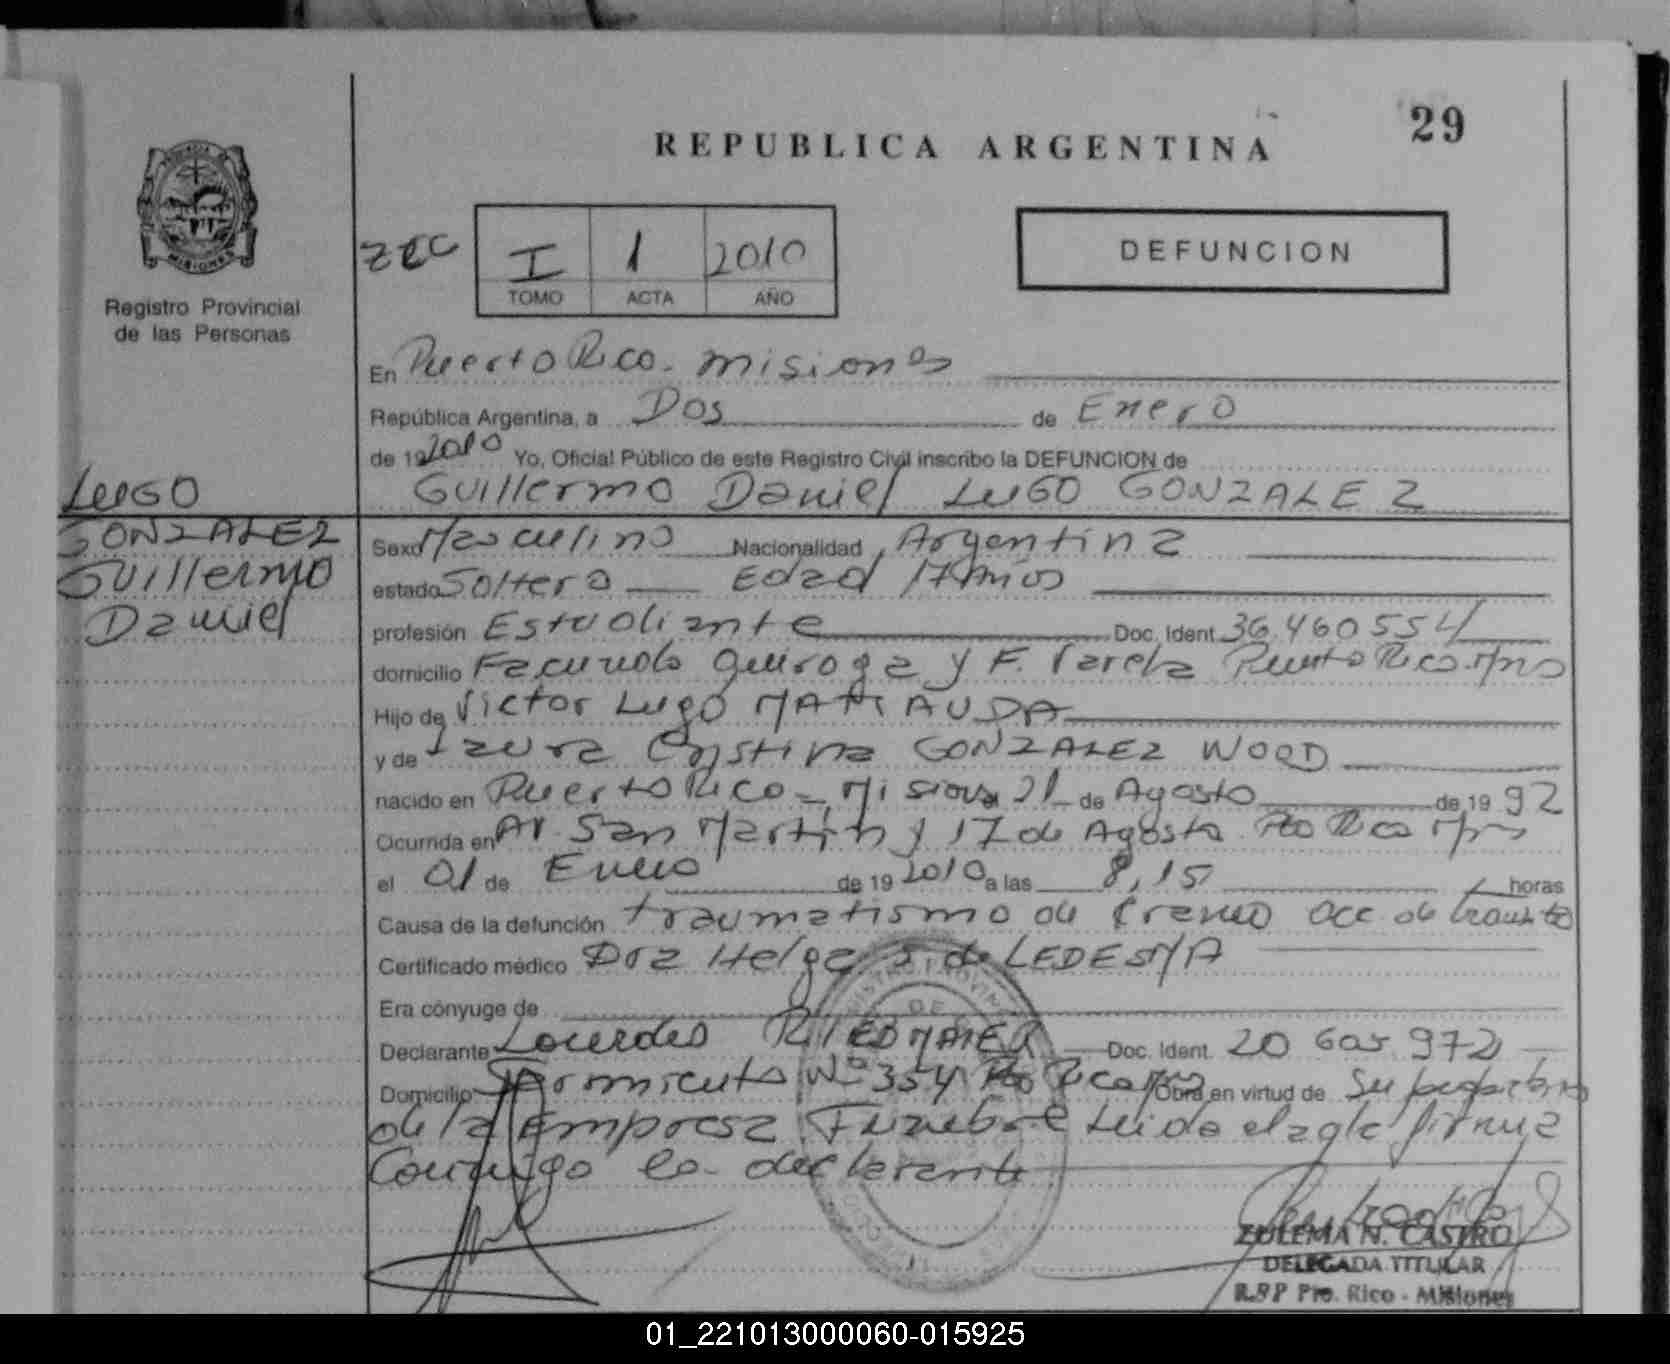 29
REPUBLICA ARGENTINA
PROVINCIA DE MISIONES
Registro Provincial
de las Personas
I 1 2010
TOMO ACTA AÑO
DEFUNCION
En Puerto Rico. Misiones
República Argentina, a Dos de Enero
de 19 2010 Yo, Oficial Público de este Registro Civil inscribo la DEFUNCION de
Guillermo Daniel LUGO GONZALEZ
LUGO
GONZALEZ
Guillermo
Daniel
Sexo Masculino Nacionalidad Argentina
estado Soltero Edad 17 años
profesión Estudiante Doc. Ident. 36.460554
domicilio Facundo Quiroga y F. Varela Puerto Rico Mnes
Hijo de Victor Lugo
y de Laura Cristina GONZALEZ WOOD
nacido en Puerto Rico - Misiones 21 de Agosto de 19 92
Ocurrida en Av. San Martin y 17 de Agosto Pto Rico Mnes
el 01 de Enero de 19 2010 a las 8,15 horas
Causa de la defunción traumatismo de craneo acc. de transito
Certificado médico Dra Helga S. de LEDESMA
Era cónyuge de
Declarante Lourdes RIEDMAIER Doc. Ident. 20 605 972
Domicilio Sarmiento Nº 354 Pto Rico Mnes Obra en virtud de Su
de la Empresa Funebre Leida el acta firma
Conmigo la declarante
ZULEMA N. CASTRO
DELEGADA TITULAR
R.P.P Pto. Rico - Misiones
01_221013000060-015925